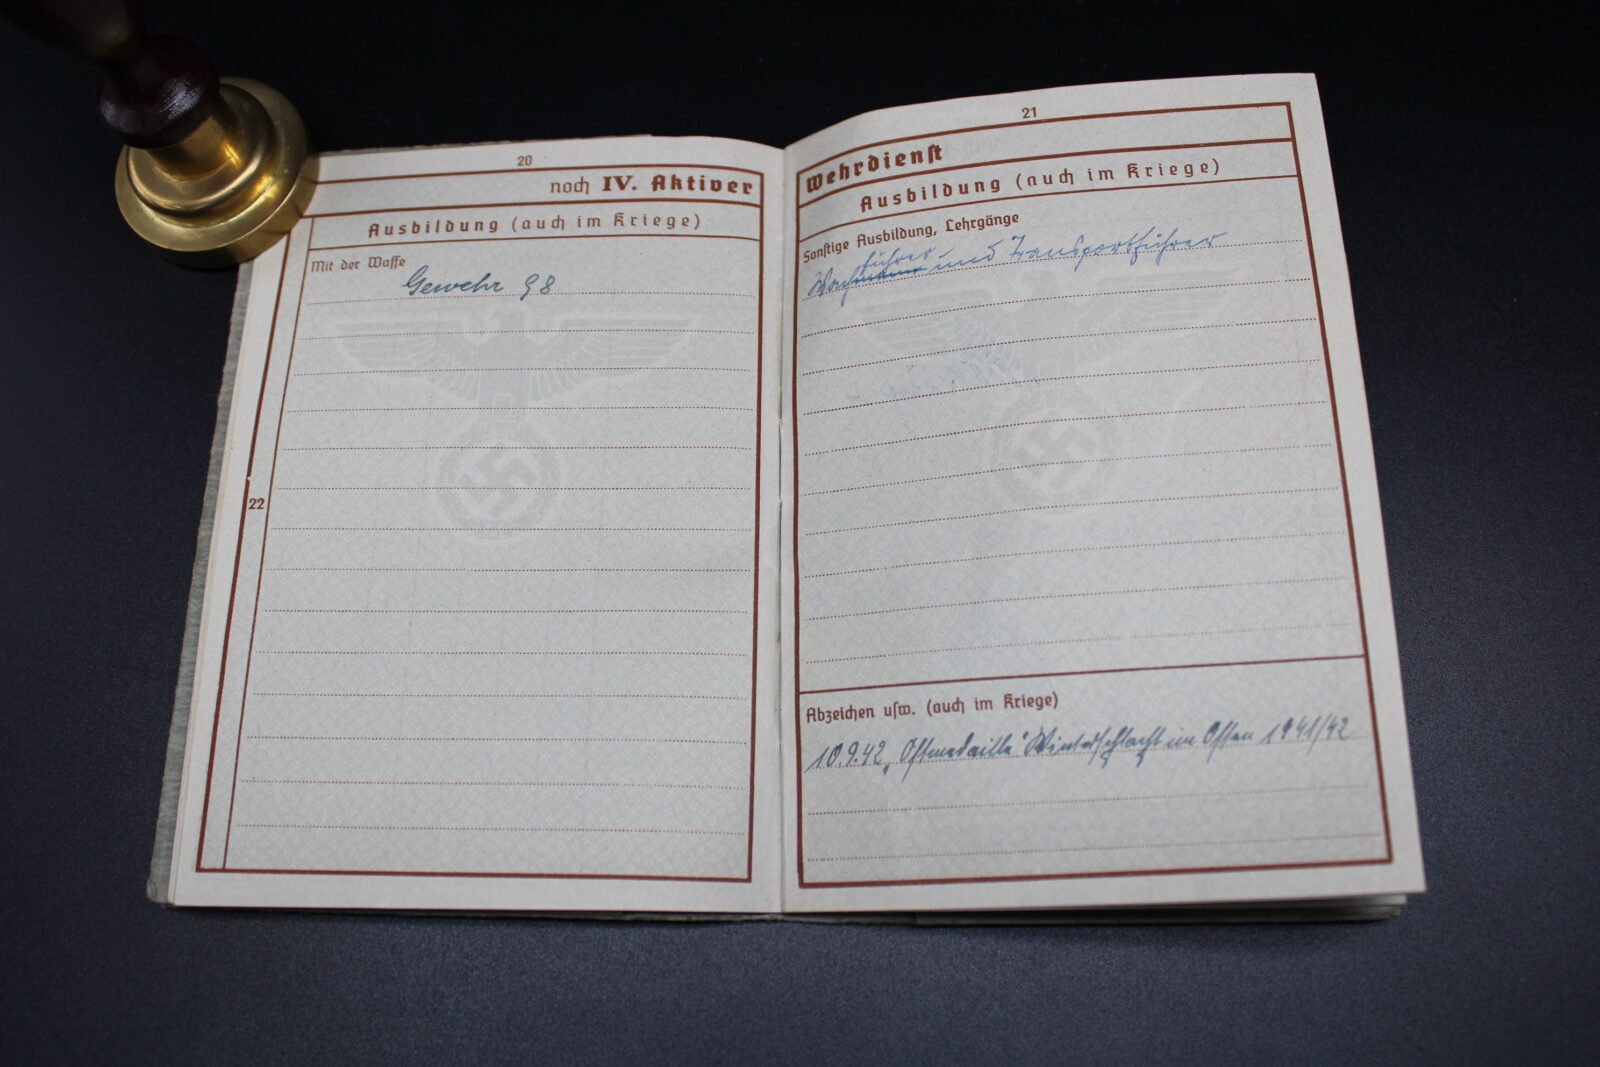 20
noch IV. Aktiver
Ausbildung (auch im Kriege)
Mit der Waffe
Gewehr 98
22
21
Wehrdienst
Ausbildung (auch im Kriege)
Sonstige Ausbildung, Lehrgänge
führer
Wachmann und Transportführer
Abzeichen usw. (auch im Kriege)
10.9.42 „Ostmedaille" Winterschlacht im Osten 1941/42